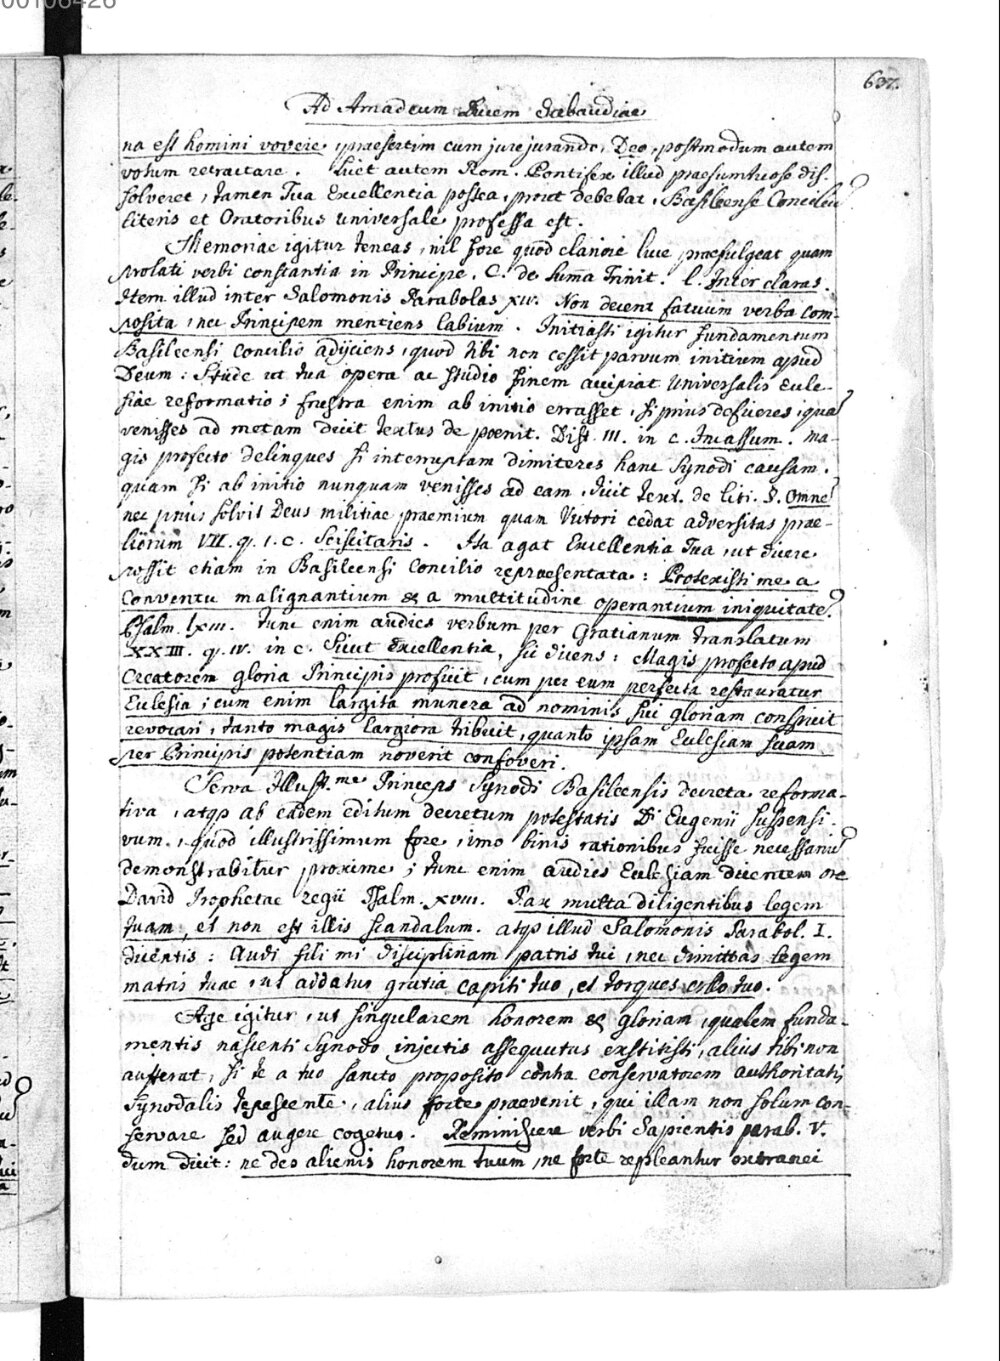 00106426
637.
Ad Amadeum Ducem Sabaudiae
na est homini vovere, praesertim cum jurejurando, Deo, postmodum autem
votum retractare. Licet autem Rom. Pontifex illud praesumtuose dis-
solveret, tamen Tua Excellentia postea, prout debebat, Basileense Concilium
literis et Oratoribus universale professa est.
Memoriae igitur teneas, nil fore quod clariore luce praefulgeat quam
prolati verbi constantia in Principe. C. de Sum̄a Trinit. l. Inter claras.
Item illud inter Salomonis Parabolas XVI. Non decent fatuum verba com-
posita, nec Principem mentiens labium. Initiasti igitur fundamentum
Basileensi Concilio adijciens, quod tibi non cessit parvum initium apud
Deum: Stude ut tua opera ac studio finem accipiat Universalis Eccle-
siae reformatio; frustra enim ab initio errasset, si prius deficeres, quam
venisses ad metam dicit textus de poenit. Dist. III. in c. Incassum. ma-
gis profecto delinques si interruptam dimiteres hanc Synodi causam.
quam si ab initio nunquam venisses ad eam, dicit text. de liti. §. Omnem
nec prius solvit Deus militiae praemium quam Victori cedat adversitas prae-
liorum VII. q. 1. c. Sciscitaris. Ita agat Excellentia Tua, ut dicere
possit etiam in Basileensi Concilio repraesentata: Protexisti me a
Conventu malignantium & a multitudine operantium iniquitatem.
Psalm. lXIII. tunc enim audies verbum per Gratianum translatum
XXIII. q. IV. in c. Sicut Excellentia, sic dicens: Magis profecto apud
Creatorem gloria Principis proficit, cum per eum perfecta restauratur
Eclesia; cum enim largita munera ad nominis sui gloriam conspicit
revocari, tanto magis largiora tribuit, quanto ipsam Eclesiam suam
per Principis potentiam noverit confoveri.
Serva Illust.me Princeps Synodi Basileensis decreta reforma-
tiva, atqs ab eadem editum decretum potestatis Di Eugenii suspensi-
vum, quod illustrissimum fore, imo binis rationibus fuisse necessarium
demonstrabitur proxime; tunc enim audies Eclesiam dicentem ore
David Prophetae regii Psalm. XVIII. Pax multa diligentibus legem
tuam, et non est illis scandalum. atqs illud Salomonis Parabol. I.
dicentis: Audi fili mi disciplinam patris tui, nec dimittas legem
matris tuae, ut addatur gratia capiti tuo, et torques collo tuo.
Age igitur, ut singularem honorem & gloriam, qualem funda-
mentis nascenti Synodo injectis assequutus exstitisti, alius tibi non
aufferat, si te a tuo sancto proposito contra conservatorem authoritatis
Synodalis tepescente, alius forte praevenit, qui illam non solum con-
servare sed augere cogetur. Reminiscere verbi Sapientis parab. V.
dum dicit: ne des alienis honorem tuum, ne forte repleantur extranei